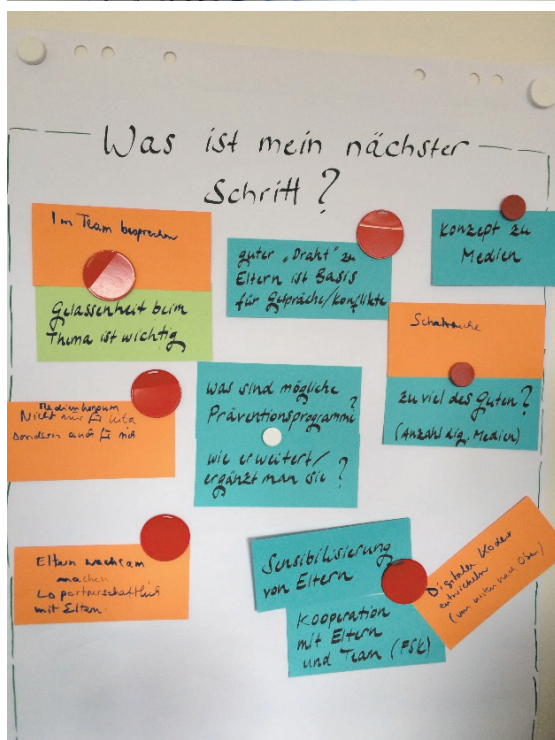 Was ist mein nächster
Schritt?
Im Team besprechen
Gelassenheit beim
Thema ist wichtig
guter „Draht" zu
Eltern ist Basis
für Gespräche/Konflikte
Konzept zu
Medien
Schatzsuche
zu viel des Guten?
(Anzahl dig. Medien)
Medienkonsum
Nicht nur für Kita
sondern auch für mich
was sind mögliche
Präventionsprogramme?
wie erweitert/
ergänzt man sie?
Eltern wachsam
machen
partnerschaftlich
mit Eltern.
Sensibilisierung
von Eltern
Kooperation
mit Eltern
und Team (PSK)
Digitalen Kodex
entwickeln
(von unten nach oben)